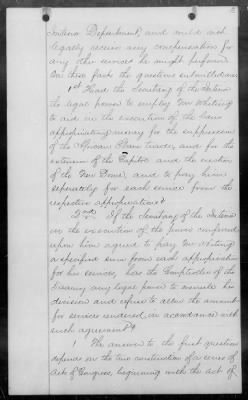 Interior Department, and could not
legally receive any compensation for
any other services he might perform.
On these facts the questions submitted are:
1st Had the Secretary of the Interior
the legal power to employ Mr Whiting
to aid in the execution of the laws
appropriating money for the suppression
of the African Slave trade, and for the
extension of the Capitol and the erection
of the New Dome, and to pay him
separately for each service from the
respective appropriations?
2nd If the Secretary of the Interior
in the execution of the power conferred
upon him agreed to pay Mr Whiting
a specified sum from each appropriation
for his services, has the Comptroller of the
Treasury any legal power to overrule his
decision and refuse to allow the amount
for services rendered in accordance with
such agreement?
1 The answer to the first question
depends on the true construction of a series of
Acts of Congress, beginning with the act of